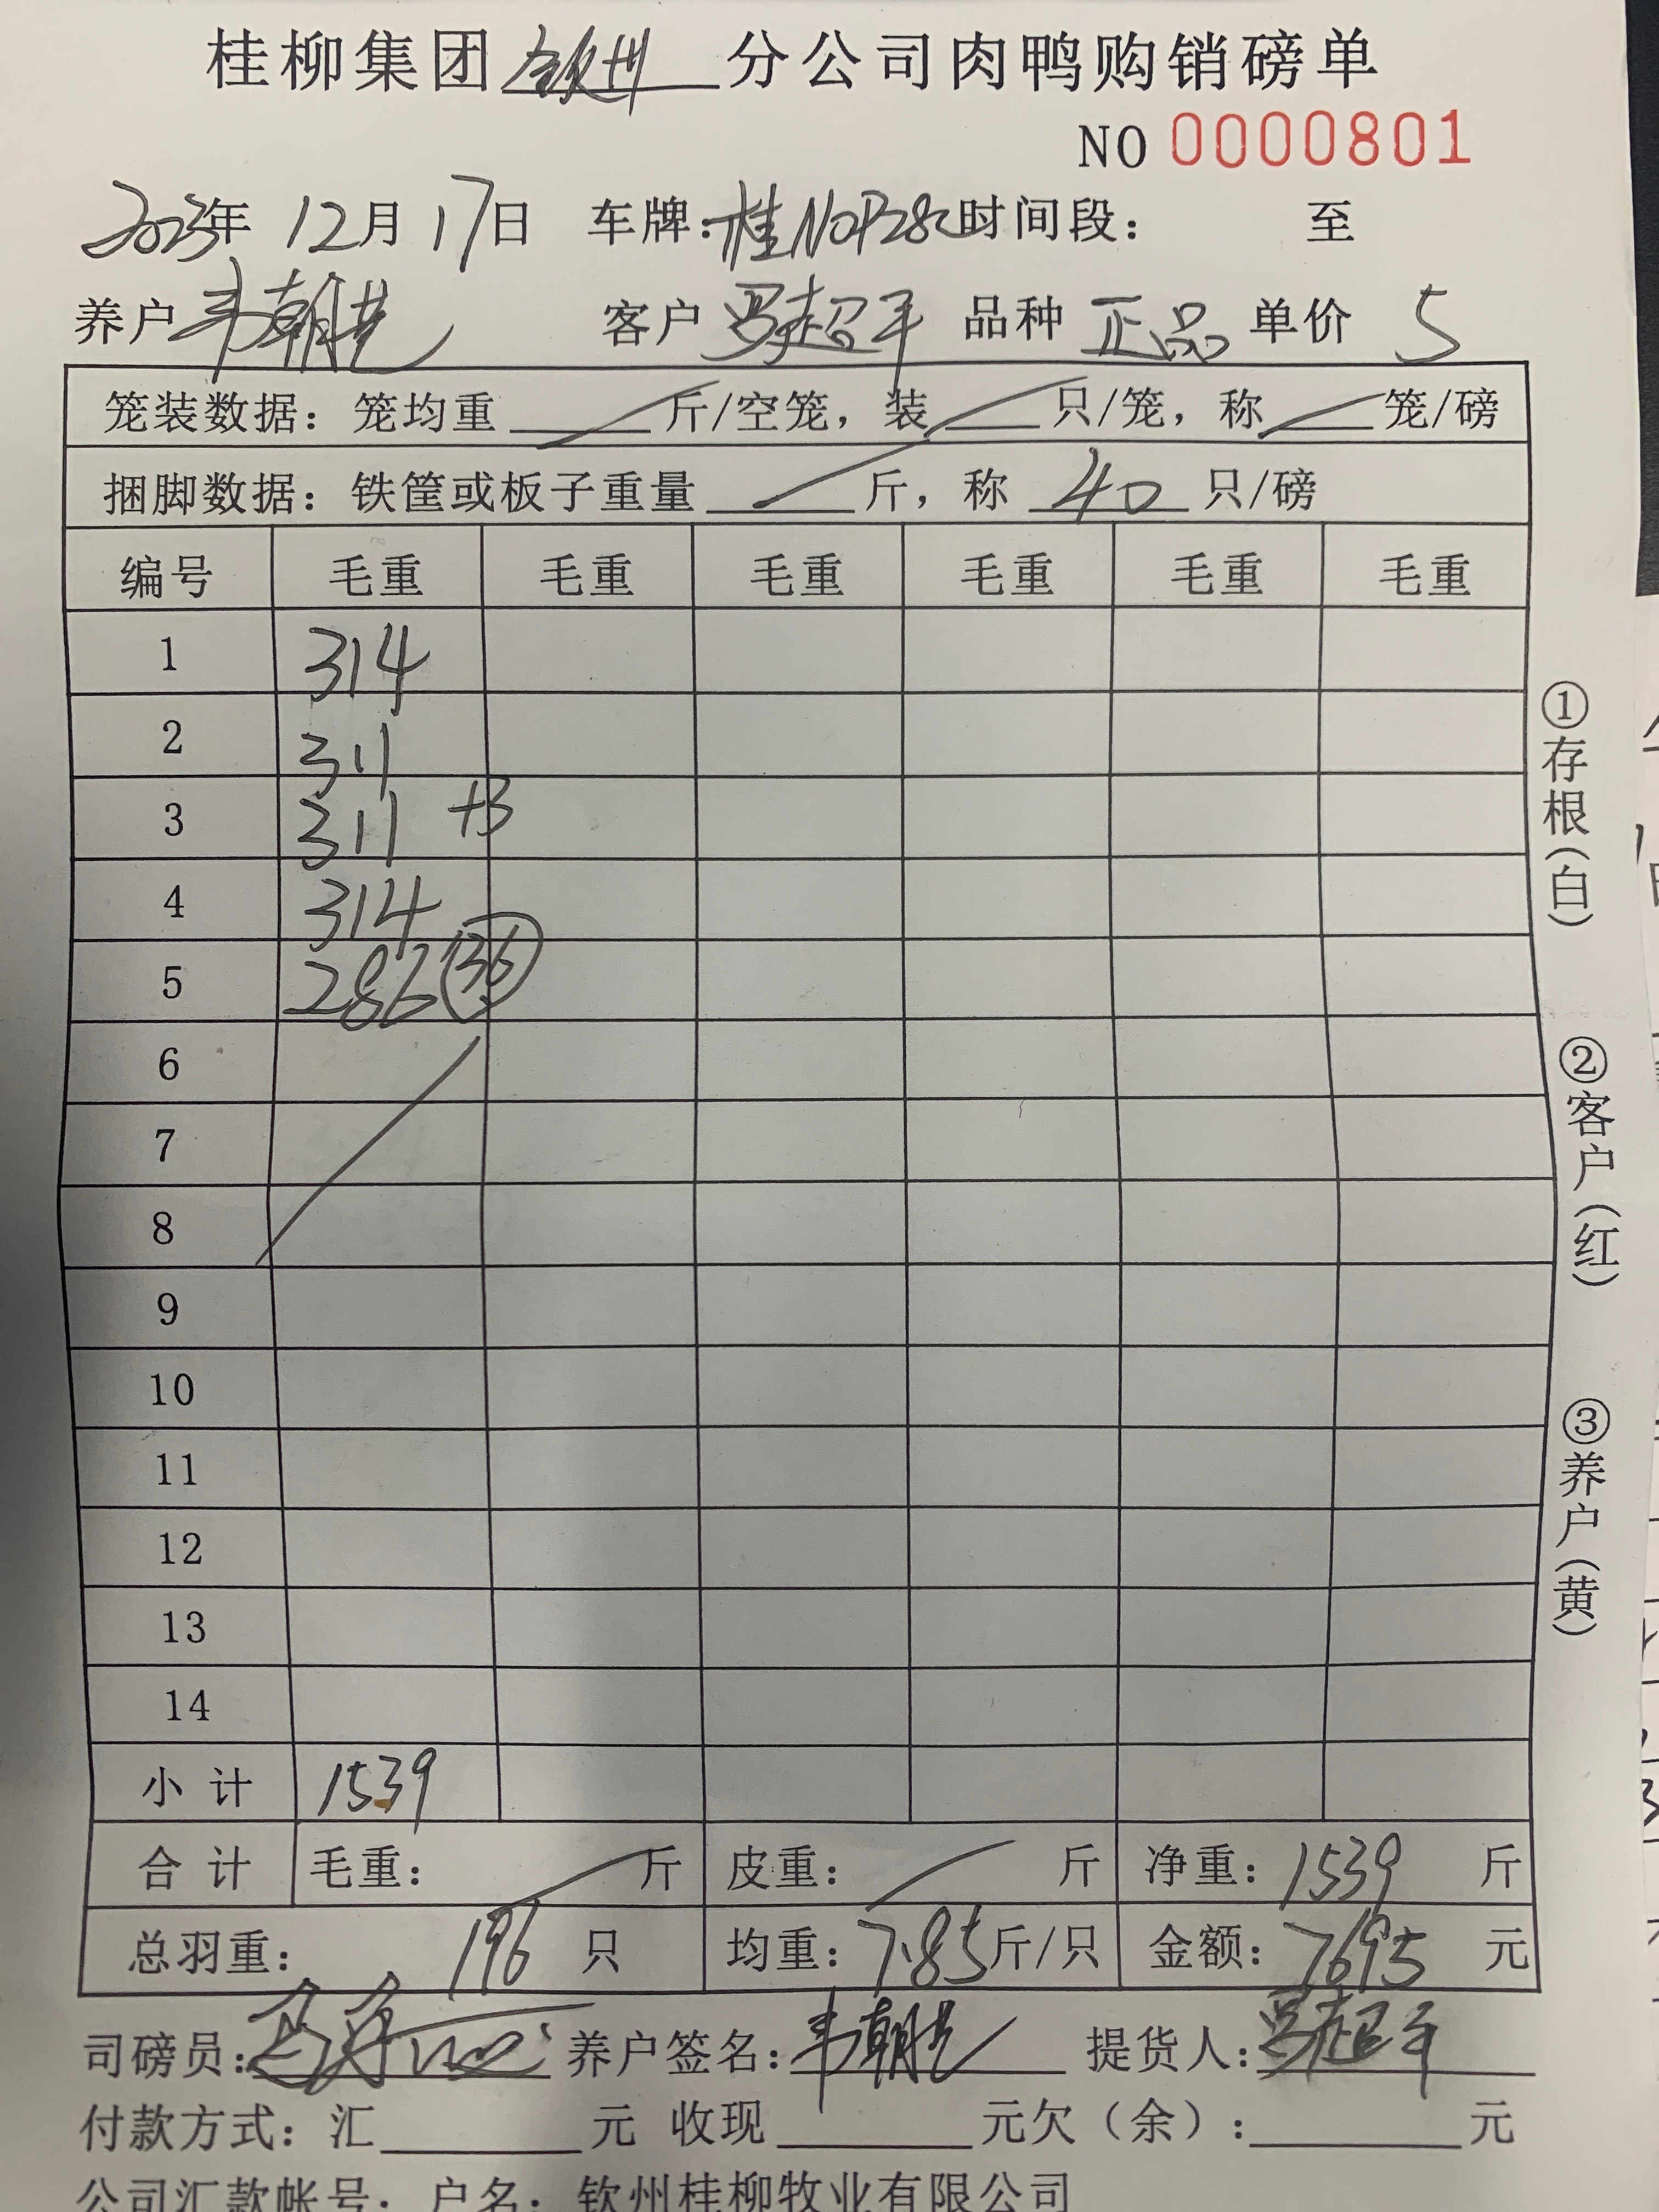 桂柳集团钦州分公司肉鸭购销磅单
NO 0000801
2023年 12月 17日 车牌:桂N0P28 时间段: 至
养户韦朝 客户 罗超平 品种 正品 单价 5
笼装数据: 笼均重 斤/空笼, 装 只/笼, 称 笼/磅
捆脚数据: 铁筐或板子重量 斤, 称 40 只/磅
编号 毛重 毛重 毛重 毛重 毛重 毛重
1 314
2 311
3 311 +3
4 314
5 286 36
6
7
8
9
10
11
12
13
14
小计 1539
合计 毛重: 斤 皮重: 斤 净重: 1539 斤
总羽重: 196 只 均重: 7.85斤/只 金额: 7695 元
司磅员: 养户签名: 韦朝 提货人: 罗超平
付款方式: 汇 元 收现 元欠(余): 元
公司汇款帐号: 户名: 钦州桂柳牧业有限公司
①存根(白)
②客户(红)
③养户(黄)